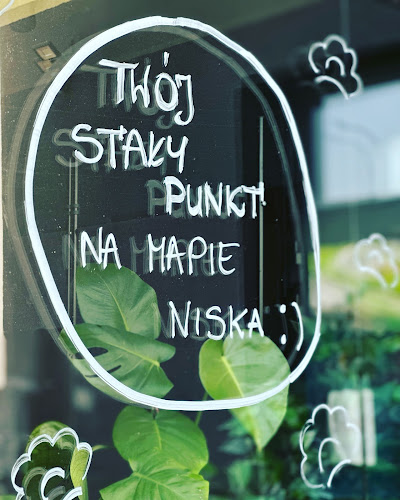 TWÓJ
STAŁY
PUNKT
NA MAPIE
NISKA :)